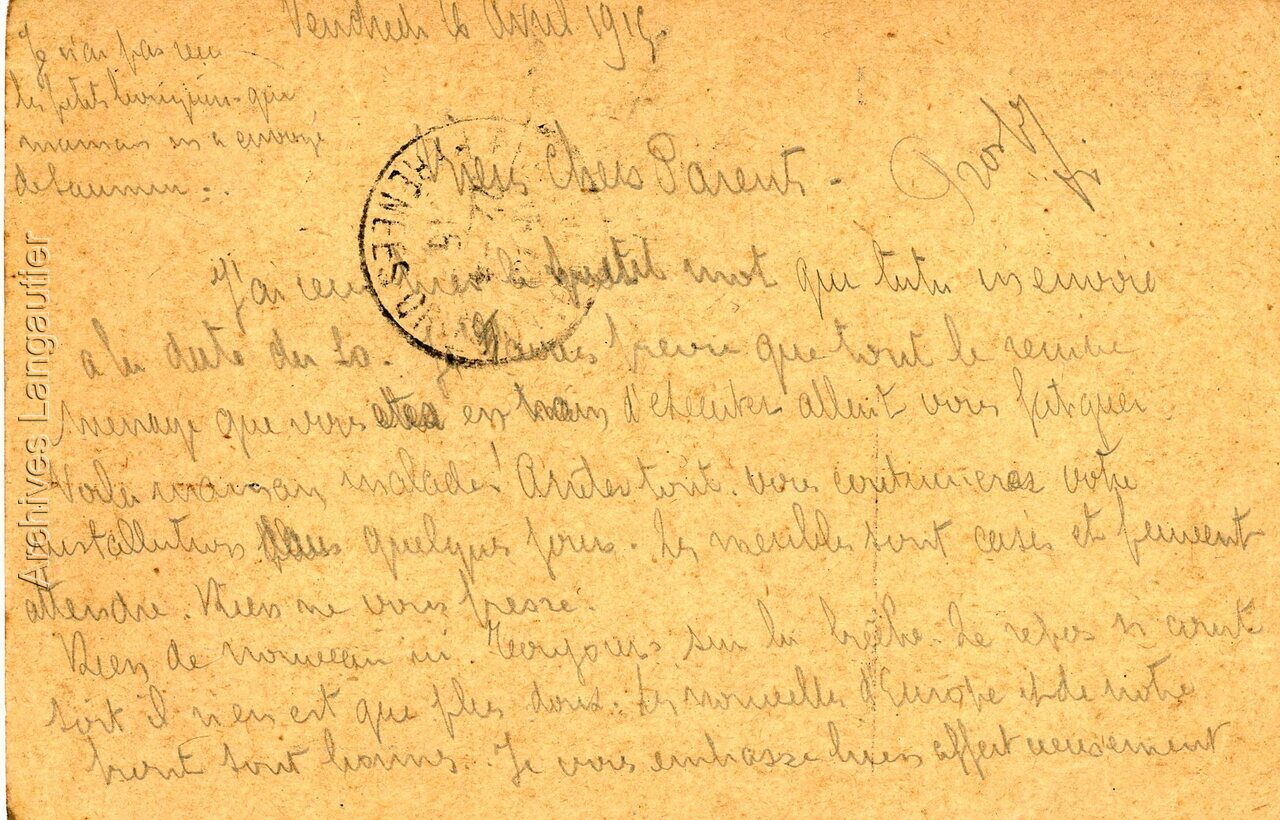 Vendredi 16 Avril 1915
Je n'ai pas reçu
les petits que
maman m'a envoyé
de Saumur
Mes Chers Parents -
J'ai reçu hier le mot que m'envoie
a la date du 10. Je prevoie que tout le remue
menage que vous etes en train d'executer allait vous fatiguer
Voila maman malade! Arretez tout. vous continuerez votre
installation dans quelques jours. Les meubles sont casés et peuvent
attendre. Rien ne vous presse.
Rien de nouveau ici. Toujours sur la brèche. Le repos n'aura
soit il n'en est que plus doux. Les nouvelles d'Europe et de notre
front sont bonnes. Je vous embrasse bien affectueusement
PYRENEES
15
Archives Langautier